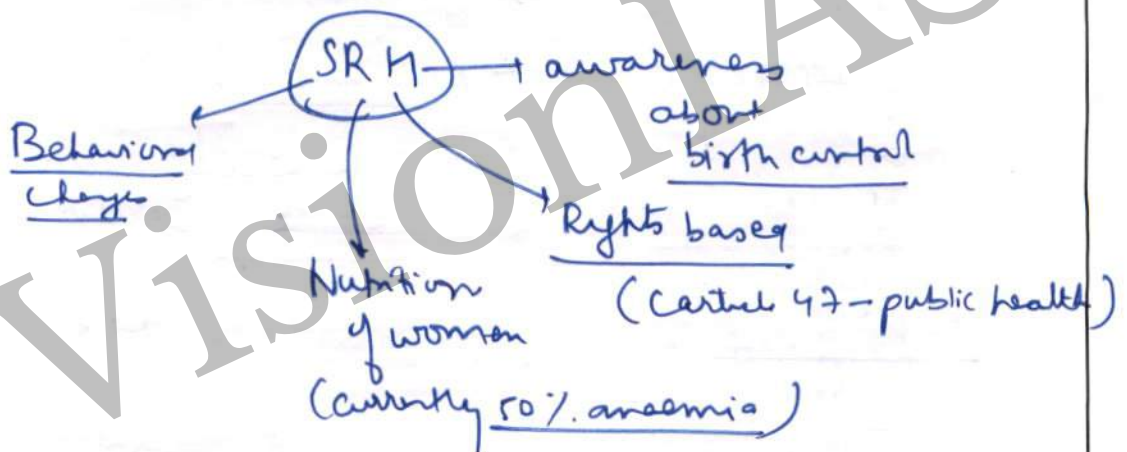 SRH
awareness
about
birth control
Behavioral
changes
Rights based
(article 47 - public health)
Nutrition
of women
(currently 50%. anaemia)
VisionIAS